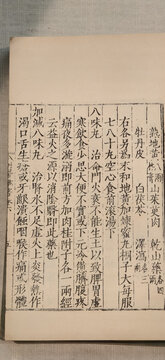 熟地黃 山茱萸肉 乾山藥
牡丹皮 白茯苓 澤瀉
右各另為末和地黃加煉蜜丸桐子大每服
七八十丸空心食前滾湯下
八味丸 治命門火衰不能生土以致脾胃虛
寒飲食少思大便不實或下元冷憊臍腹疼
痛夜多漩溺即前方加肉桂附子各一兩經
云益火之源以消陰翳即此藥也
加減八味丸 治腎水不足虛火上炎發熱作
渴口舌生瘡或牙齦潰蝕咽喉作痛形體